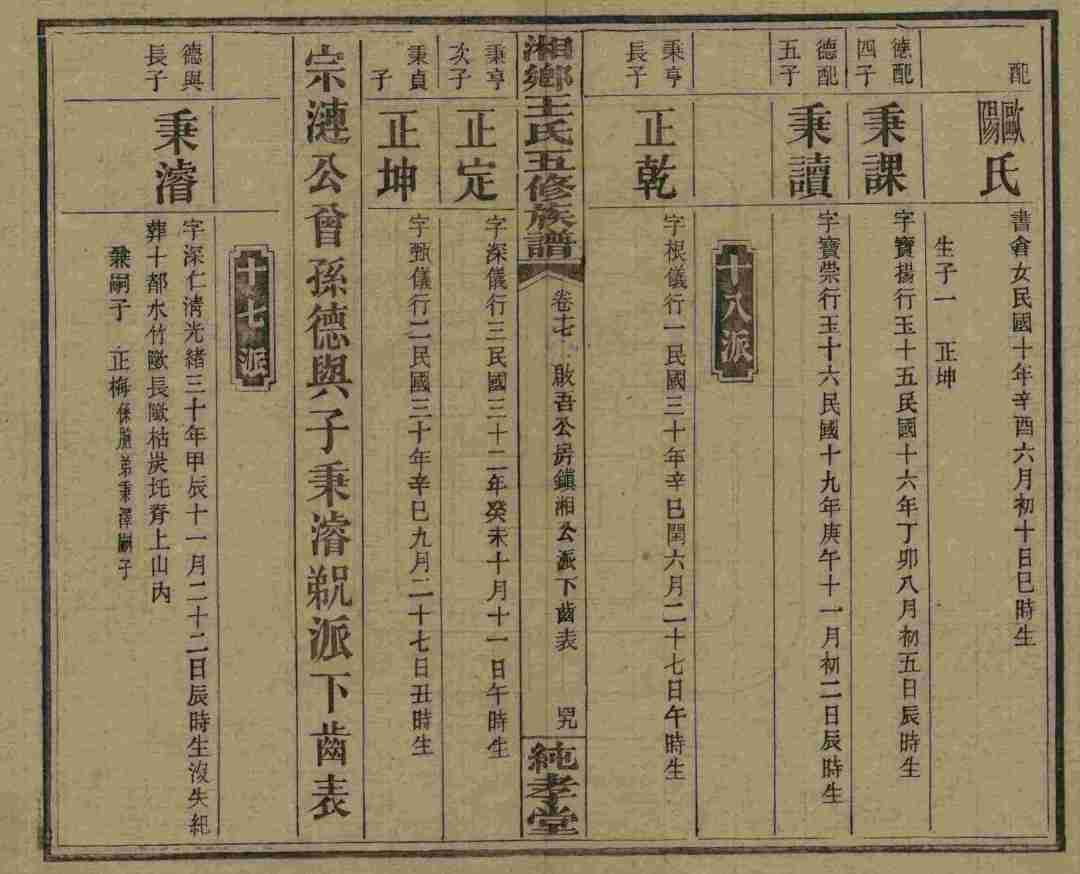 配
歐陽氏
書會女民國十年辛酉六月初十日巳時生
生子一 正坤
德配四子
秉課
字寶揚行五十五民國十六年丁卯八月初五日辰時生
德配五子
秉讀
字寶崇行五十六民國十九年庚午十一月初二日辰時生
十八派
秉亨長子
正乾
字根儀行一民國三十年辛巳閏六月二十七日午時生
湘鄉王氏五修族譜
卷十七 啟吾公房鎮湘公派下齒表
純孝堂
秉亨次子
正定
字深儀行三民國三十二年癸未十月十一日午時生
秉貞子
正坤
字甄儀行二民國三十年辛巳九月二十七日丑時生
宗漣公曾孫德與子秉濬派下齒表
十七派
德與長子
秉濬
字深仁清光緒三十年甲辰十一月二十二日辰時生沒失紀
葬十都水竹歐長歐枯炭圫脊上山內
兼嗣子 正梅係胞弟秉澤嗣子